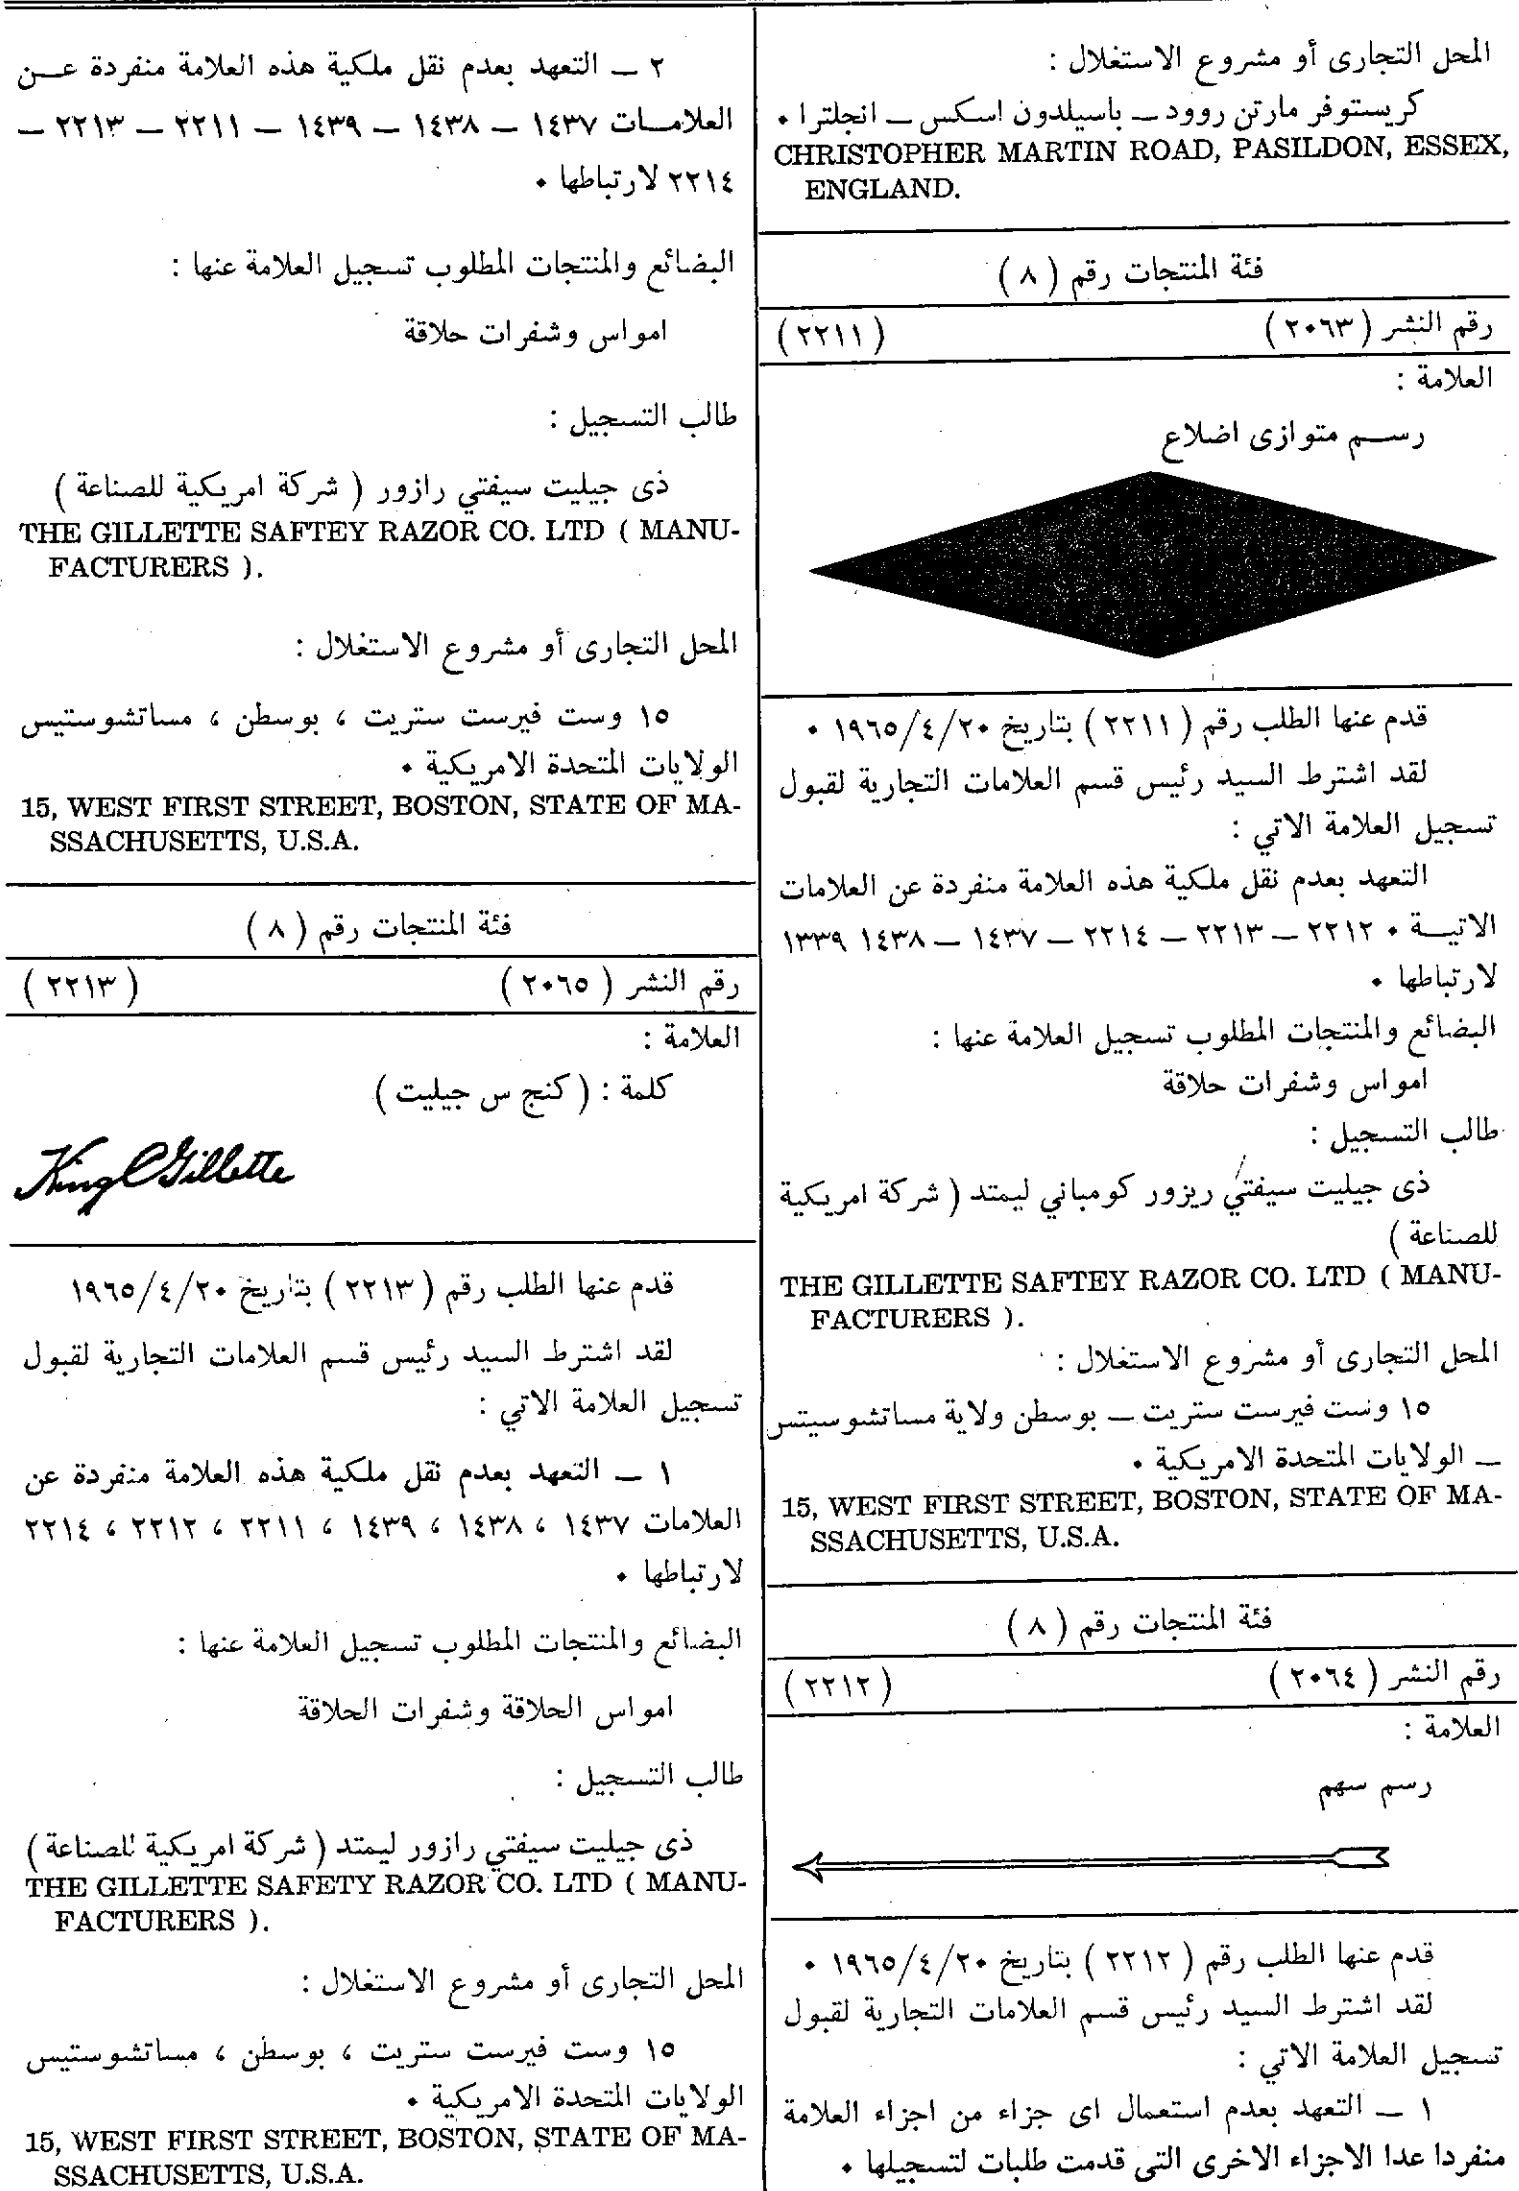 المحل التجارى أو مشروع الاستغلال :
كريستوفر مارتن روود ــ باسيلدون اسكس ــ انجلترا ٠
CHRISTOPHER MARTIN ROAD, PASILDON, ESSEX,
ENGLAND.
فئة المنتجات رقم ( ٨ )
رقم النشر ( ٢٠٦٣ ) ( ٢٢١١ )
العلامة :
رســم متوازى اضلاع
قدم عنها الطلب رقم ( ٢٢١١ ) بتاريخ ١٩٦٥/٤/٢٠ ٠
لقد اشترط السيد رئيس قسم العلامات التجارية لقبول
تسجيل العلامة الاتي :
التعهد بعدم نقل ملكية هذه العلامة منفردة عن العلامات
الاتيــة ٠ ٢٢١٢ ــ ٢٢١٣ ــ ٢٢١٤ ــ ١٤٣٧ ــ ١٤٣٨ ١٣٣٩
لارتباطها ٠
البضائع والمنتجات المطلوب تسجيل العلامة عنها :
امواس وشفرات حلاقة
طالب التسجيل :
ذى جيليت سيفتي ريزور كومباني ليمتد ( شركة امريكية
للصناعة )
THE GILLETTE SAFTEY RAZOR CO. LTD ( MANU-
FACTURERS ).
المحل التجارى أو مشروع الاستغلال :
١٥ وست فيرست ستريت ــ بوسطن ولاية مساتشوسيتس
ــ الولايات المتحدة الامريكية ٠
15, WEST FIRST STREET, BOSTON, STATE OF MA-
SSACHUSETTS, U.S.A.
فئة المنتجات رقم ( ٨ )
رقم النشر ( ٢٠٦٤ ) ( ٢٢١٢ )
العلامة :
رسم سهم
قدم عنها الطلب رقم ( ٢٢١٢ ) بتاريخ ١٩٦٥/٤/٢٠ ٠
لقد اشترط السيد رئيس قسم العلامات التجارية لقبول
تسجيل العلامة الاتي :
١ ــ التعهد بعدم استعمال اى جزاء من اجزاء العلامة
منفردا عدا الاجزاء الاخرى التى قدمت طلبات لتسجيلها ٠
٢ ــ التعهد بعدم نقل ملكية هذه العلامة منفردة عــن
العلامــات ١٤٣٧ ــ ١٤٣٨ ــ ١٤٣٩ ــ ٢٢١١ ــ ٢٢١٣ ــ
٢٢١٤ لارتباطها ٠
البضائع والمنتجات المطلوب تسجيل العلامة عنها :
امواس وشفرات حلاقة
طالب التسجيل :
ذى جيليت سيفتي رازور ( شركة امريكية للصناعة )
THE GILLETTE SAFTEY RAZOR CO. LTD ( MANU-
FACTURERS ).
المحل التجارى أو مشروع الاستغلال :
١٥ وست فيرست ستريت ، بوسطن ، مساتشوستيس
الولايات المتحدة الامريكية ٠
15, WEST FIRST STREET, BOSTON, STATE OF MA-
SSACHUSETTS, U.S.A.
فئة المنتجات رقم ( ٨ )
رقم النشر ( ٢٠٦٥ ) ( ٢٢١٣ )
العلامة :
كلمة : ( كنج س جيليت )
King C Gillette
قدم عنها الطلب رقم ( ٢٢١٣ ) بتاريخ ١٩٦٥/٤/٢٠
لقد اشترط السيد رئيس قسم العلامات التجارية لقبول
تسجيل العلامة الاتي :
١ ــ التعهد بعدم نقل ملكية هذه العلامة منفردة عن
العلامات ١٤٣٧ ، ١٤٣٨ ، ١٤٣٩ ، ٢٢١١ ، ٢٢١٢ ، ٢٢١٤
لارتباطها ٠
البضائع والمنتجات المطلوب تسجيل العلامة عنها :
امواس الحلاقة وشفرات الحلاقة
طالب التسجيل :
ذى جيليت سيفتي رازور ليمتد ( شركة امريكية للصناعة )
THE GILLETTE SAFETY RAZOR CO. LTD ( MANU-
FACTURERS ).
المحل التجارى أو مشروع الاستغلال :
١٥ وست فيرست ستريت ، بوسطن ، مساتشوستيس
الولايات المتحدة الامريكية ٠
15, WEST FIRST STREET, BOSTON, STATE OF MA-
SSACHUSETTS, U.S.A.